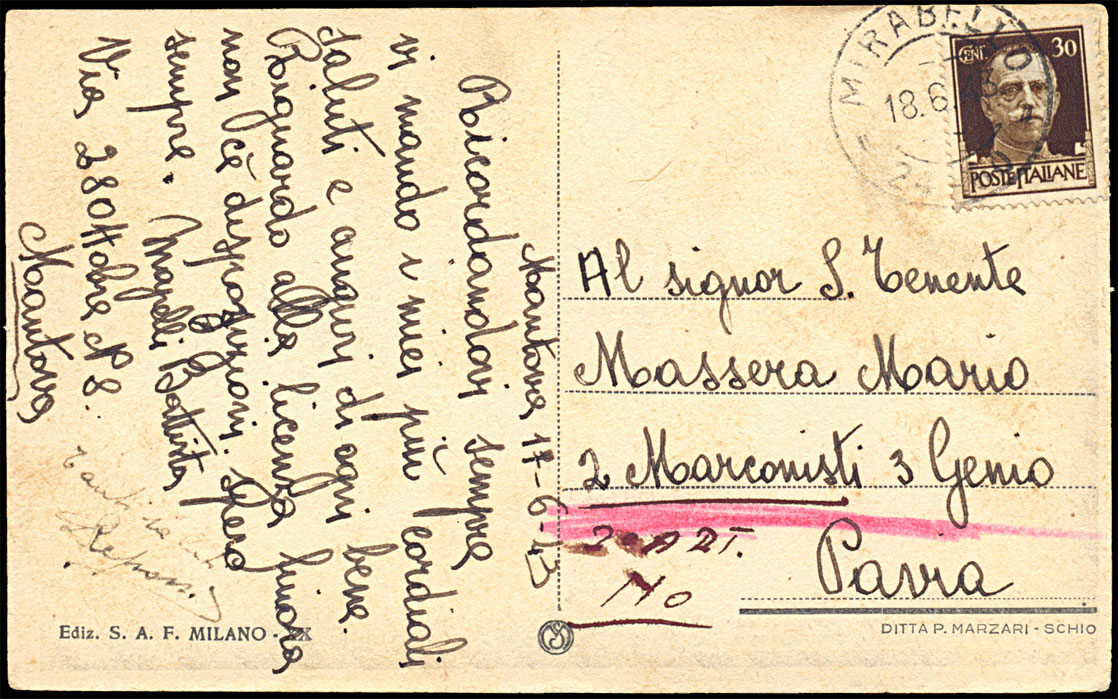 Mantova 17-6-43
Ricordandovi sempre
vi mando i miei più cordiali
saluti e auguri di ogni bene.
Riguardo alla licenza finora
non c'è disposizioni. spero
sempre. Battista
Via 28 Ottobre N 8.
Mantova
Ediz. S. A. F. MILANO -
MIRABELLO
18.6.43
CENT 30
POSTE ITALIANE
Al signor S. Tenente
Massera Mario
2 Marconisti 3 Genio
Pavia
DITTA P. MARZARI - SCHIO